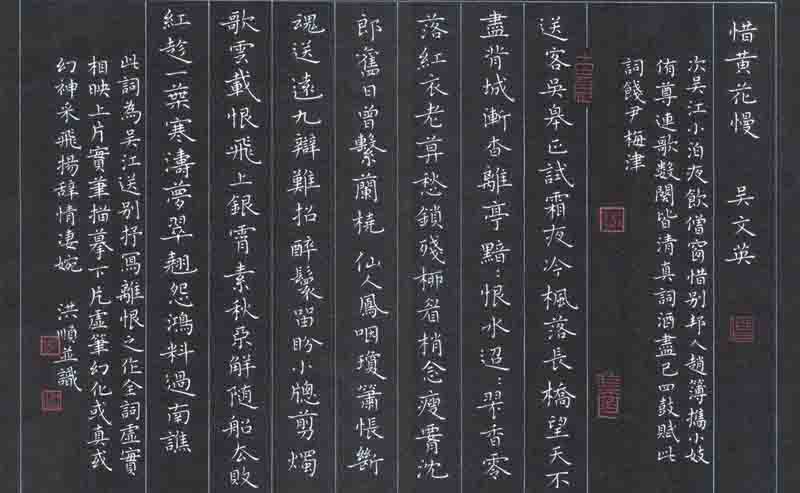 惜黃花慢 吳文英
次吳江小泊夜飲僧窗惜别邦人趙簿攜小妓
侑尊連歌數闋皆清真詞酒盡已四鼓賦此
詞餞尹梅津
送客吳皋正試霜夜冷楓落長橋望天不
盡背城漸杳離亭黯:恨水迢:翠香零
落紅衣老暮愁鎖殘柳眉梢念瘦腰沈
郎舊日曾繫蘭橈 仙人鳳咽瓊簫悵斷
魂送遠九辯難招醉鬟留盼小牕剪燭
歌雲載恨飛上銀霄素秋不解随船去敗
紅趁一葉寒濤夢翠翹怨鴻料過南譙
此詞為吳江送别抒寫離恨之作全詞虛實
相映上片實筆描摹下片虛筆幻化或真或
幻神采飛揚辞情悽婉 洪順並識